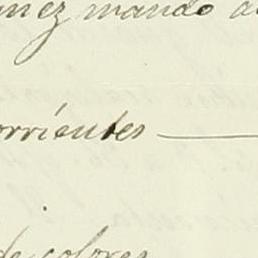 nez mando
orriéntes
de colores